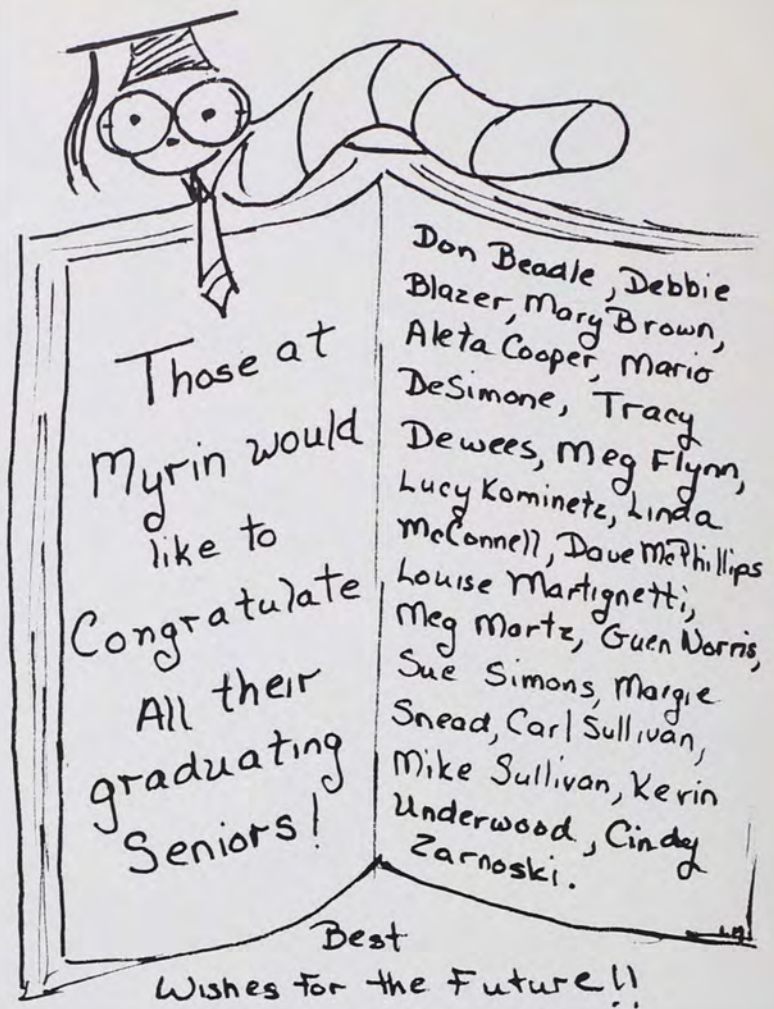 Those at
Myrin would
like to
Congratulate
All their
graduating
Seniors!
Don Beadle, Debbie
Blazer, Mary Brown,
Aleta Cooper, Mario
DeSimone, Tracy
Dewees, Meg Flynn,
Lucy Kominetz, Linda
McConnell, Dave McPhillips
Louise Martignetti,
Meg Mortz, Guen Norris,
Sue Simons, Margie
Snead, Carl Sullivan,
Mike Sullivan, Kevin
Underwood, Cindy
Zarnoski.
Best
Wishes for the Future!!